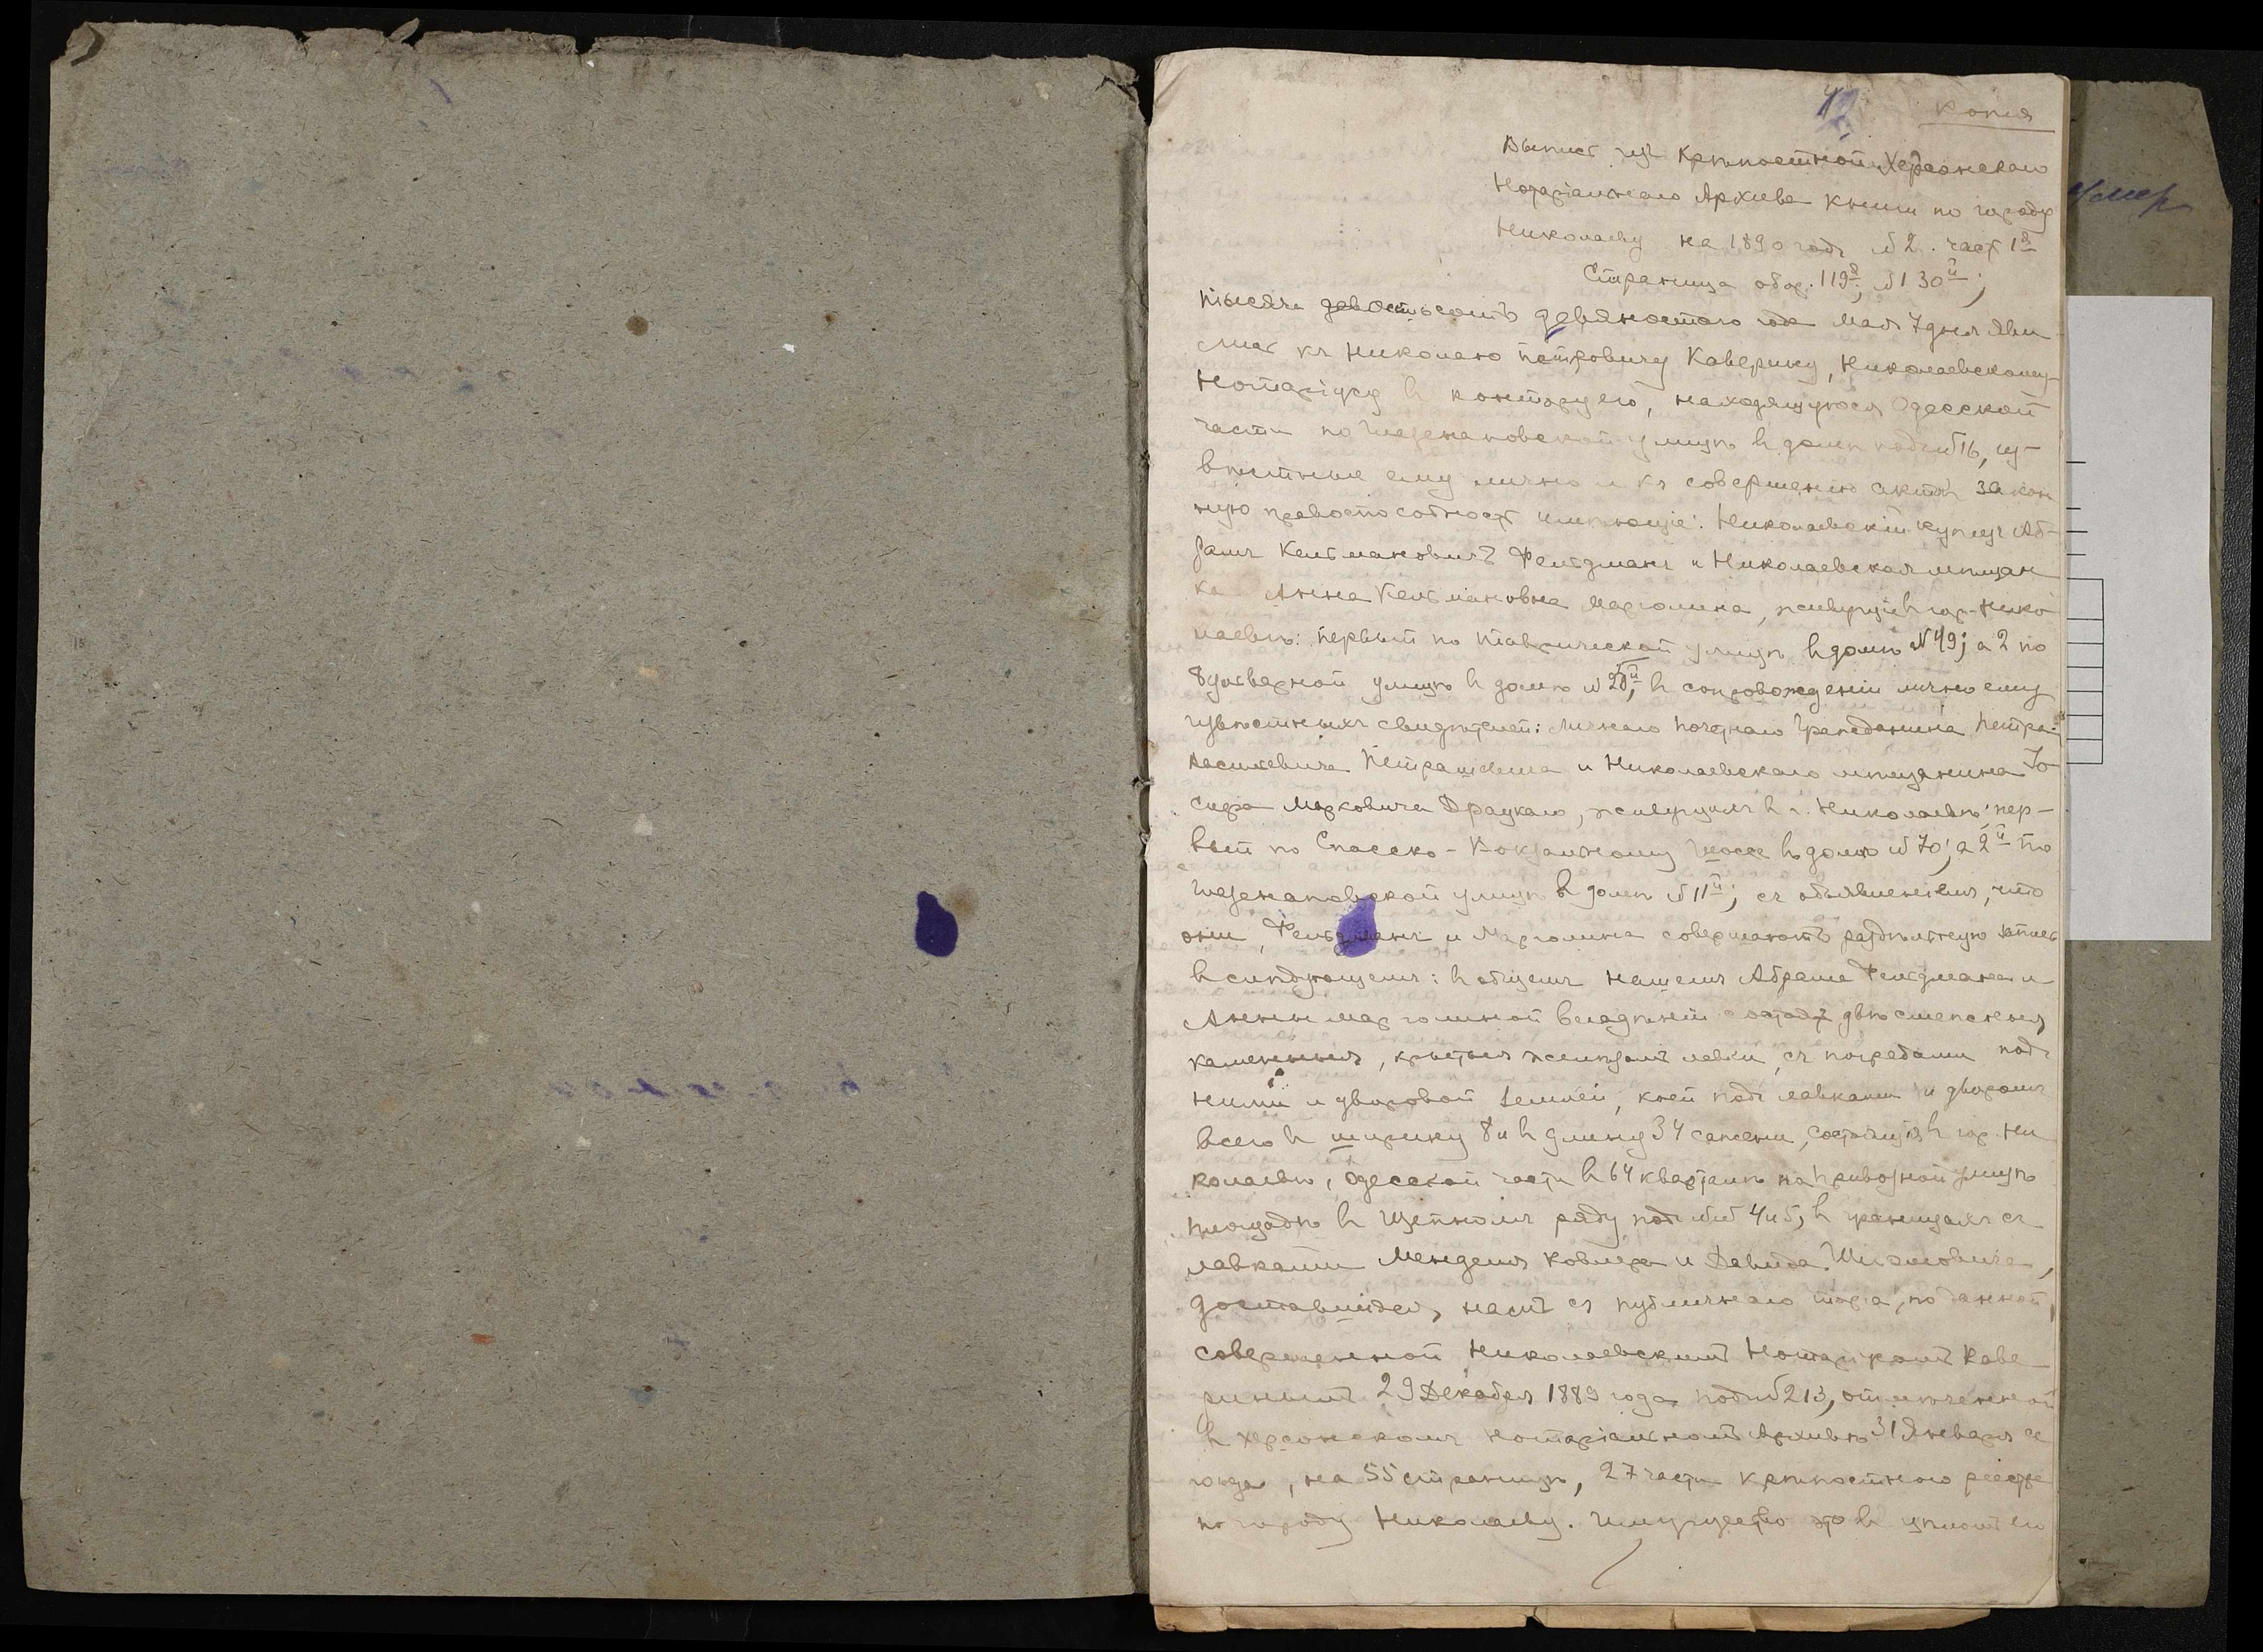 Копія
Выпись изъ Крѣпостной Херсонскаго
Нотаріальнаго Архива книги по городу
Николаеву на 1890 годъ № 2. част 1я
Страница обор. 119я, № 130й;
тысяча восемьсотъ девяностаго года Мая 7 дня яви-
лись къ Николаю Петровичу Каверину, Николаевскому
Нотаріусу въ контору его, находящуюся Одесской
части по Глазенаповской улицѣ въ домѣ подъ № 16, из-
вѣстные ему лично и къ совершенію актовъ закон
ную правоспособность имѣющіе: Николаевскій купецъ Аб-
рамъ Кельмановичъ Фельдманъ и Николаевская мѣщан
ка Анна Кельмановна Марголина, живущіе въ гор. Нико
лаевѣ: первый по Таврической улицѣ въ домѣ № 49; а 2 по
Бульварной улицѣ въ домѣ № 20й, въ сопровожденіи лично ему
извѣстныхъ свидѣтелей: Личнаго Почетнаго Гражданина Петра
Васильевича и Николаевскаго мѣщанина Іо
сифа Марковича живущихъ въ г. Николаевѣ: пер-
вый по Спасско-Вокзальному шоссе въ домѣ № 70; а 2й по
Глазенаповской улицѣ въ домѣ № 11й; съ объявленіемъ, что
они, Фельдманъ и Марголина совершаютъ раздѣльную запись
въ слѣдующемъ: въ общемъ нашемъ Абрама Фельдмана и
Анны Марголиной владѣніи состоятъ двѣ смежныя
каменныя, крытыя желѣзомъ лавки, съ погребами подъ
ними и дворовой землей, коей подъ лавками и дворомъ
всего въ ширину 8 и въ длину 34 сажени, состоящія въ гор. Ни
колаевѣ, Одесской части въ 64 кварталѣ на Привозной улицѣ
площадѣ въ Щепномъ ряду подъ №№ 4 и 5, въ границахъ съ
лавками Менделя Ковлера и Давида
доставшіяся намъ съ публичнаго торга, по данной,
совершенной Николаевскимъ Нотаріусомъ Каве
ринымъ 29 Декабря 1889 года подъ № 213, отмѣченной
въ Херсонскомъ Нотаріальномъ Архивѣ 31 Января се
го года, на 55 страницѣ, 27 части крѣпостного реестра
по городу Николаеву. Имущество это въ
Умер